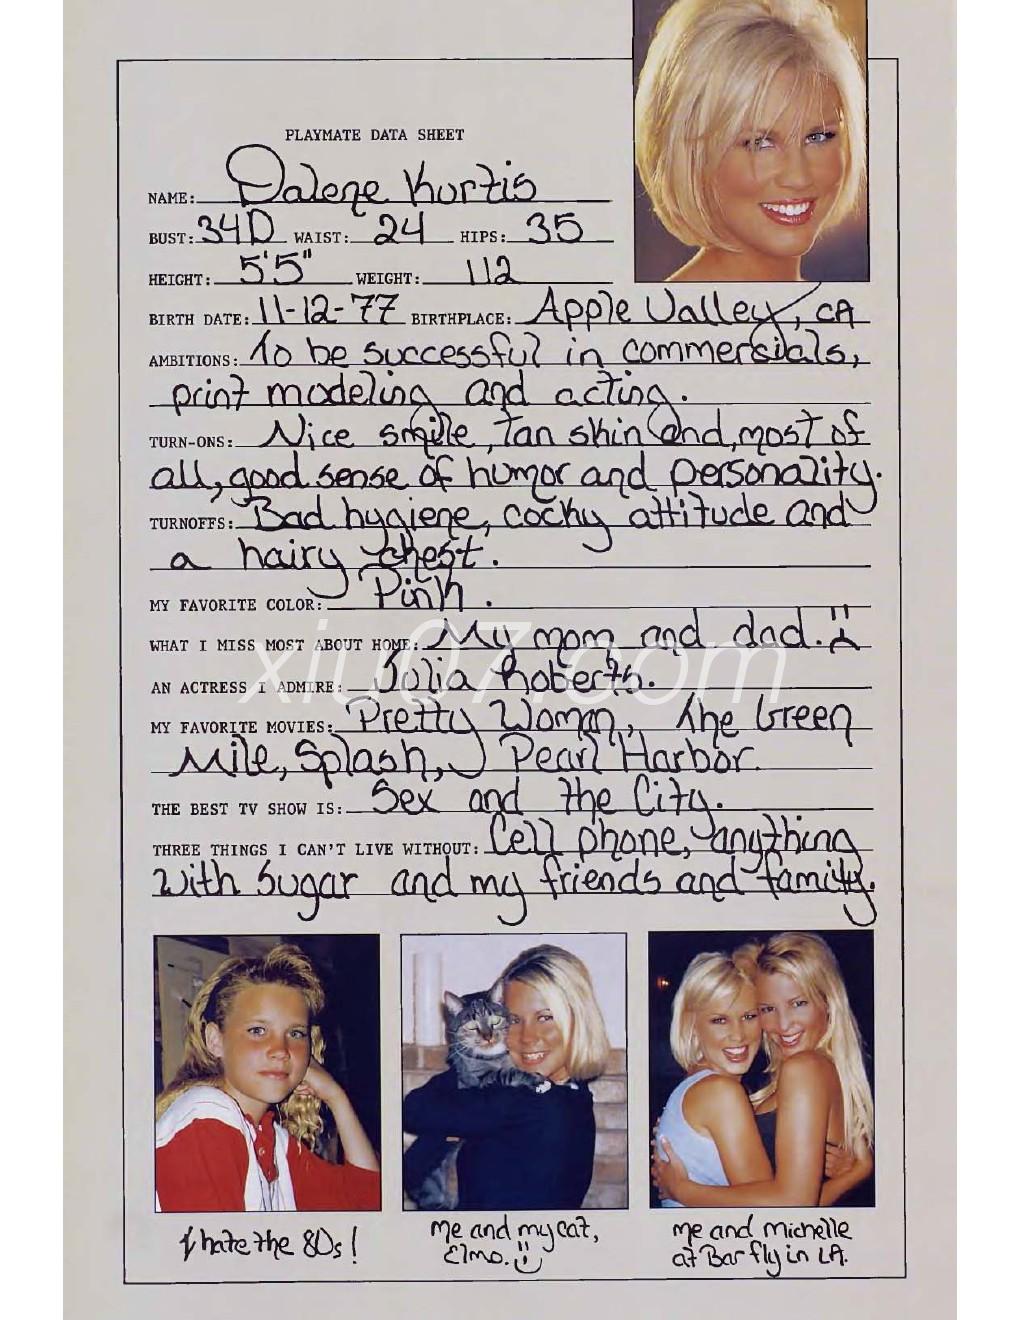 PLAYMATE DATA SHEET
NAME: Dalene Kurtis
BUST: 34D WAIST: 24 HIPS: 35
HEIGHT: 5'5" WEIGHT: 112
BIRTH DATE: 11-12-77 BIRTHPLACE: Apple Valley, CA
AMBITIONS: To be successful in commercials,
print modeling and acting.
TURN-ONS: Nice smile, tan skin and, most of
all, good sense of humor and personality.
TURNOFFS: Bad hygiene, cocky attitude and
a hairy chest.
MY FAVORITE COLOR: Pink.
WHAT I MISS MOST ABOUT HOME: My mom and dad.
AN ACTRESS I ADMIRE: Julia Roberts.
MY FAVORITE MOVIES: Pretty Woman, The Green
Mile, Splash, Pearl Harbor.
THE BEST TV SHOW IS: Sex and the City.
THREE THINGS I CAN'T LIVE WITHOUT: Cell phone, anything
with sugar and my friends and family.
xiu07.com
I hate the 80s!
me and my cat,
Elmo.
me and michelle
at Bar fly in LA.